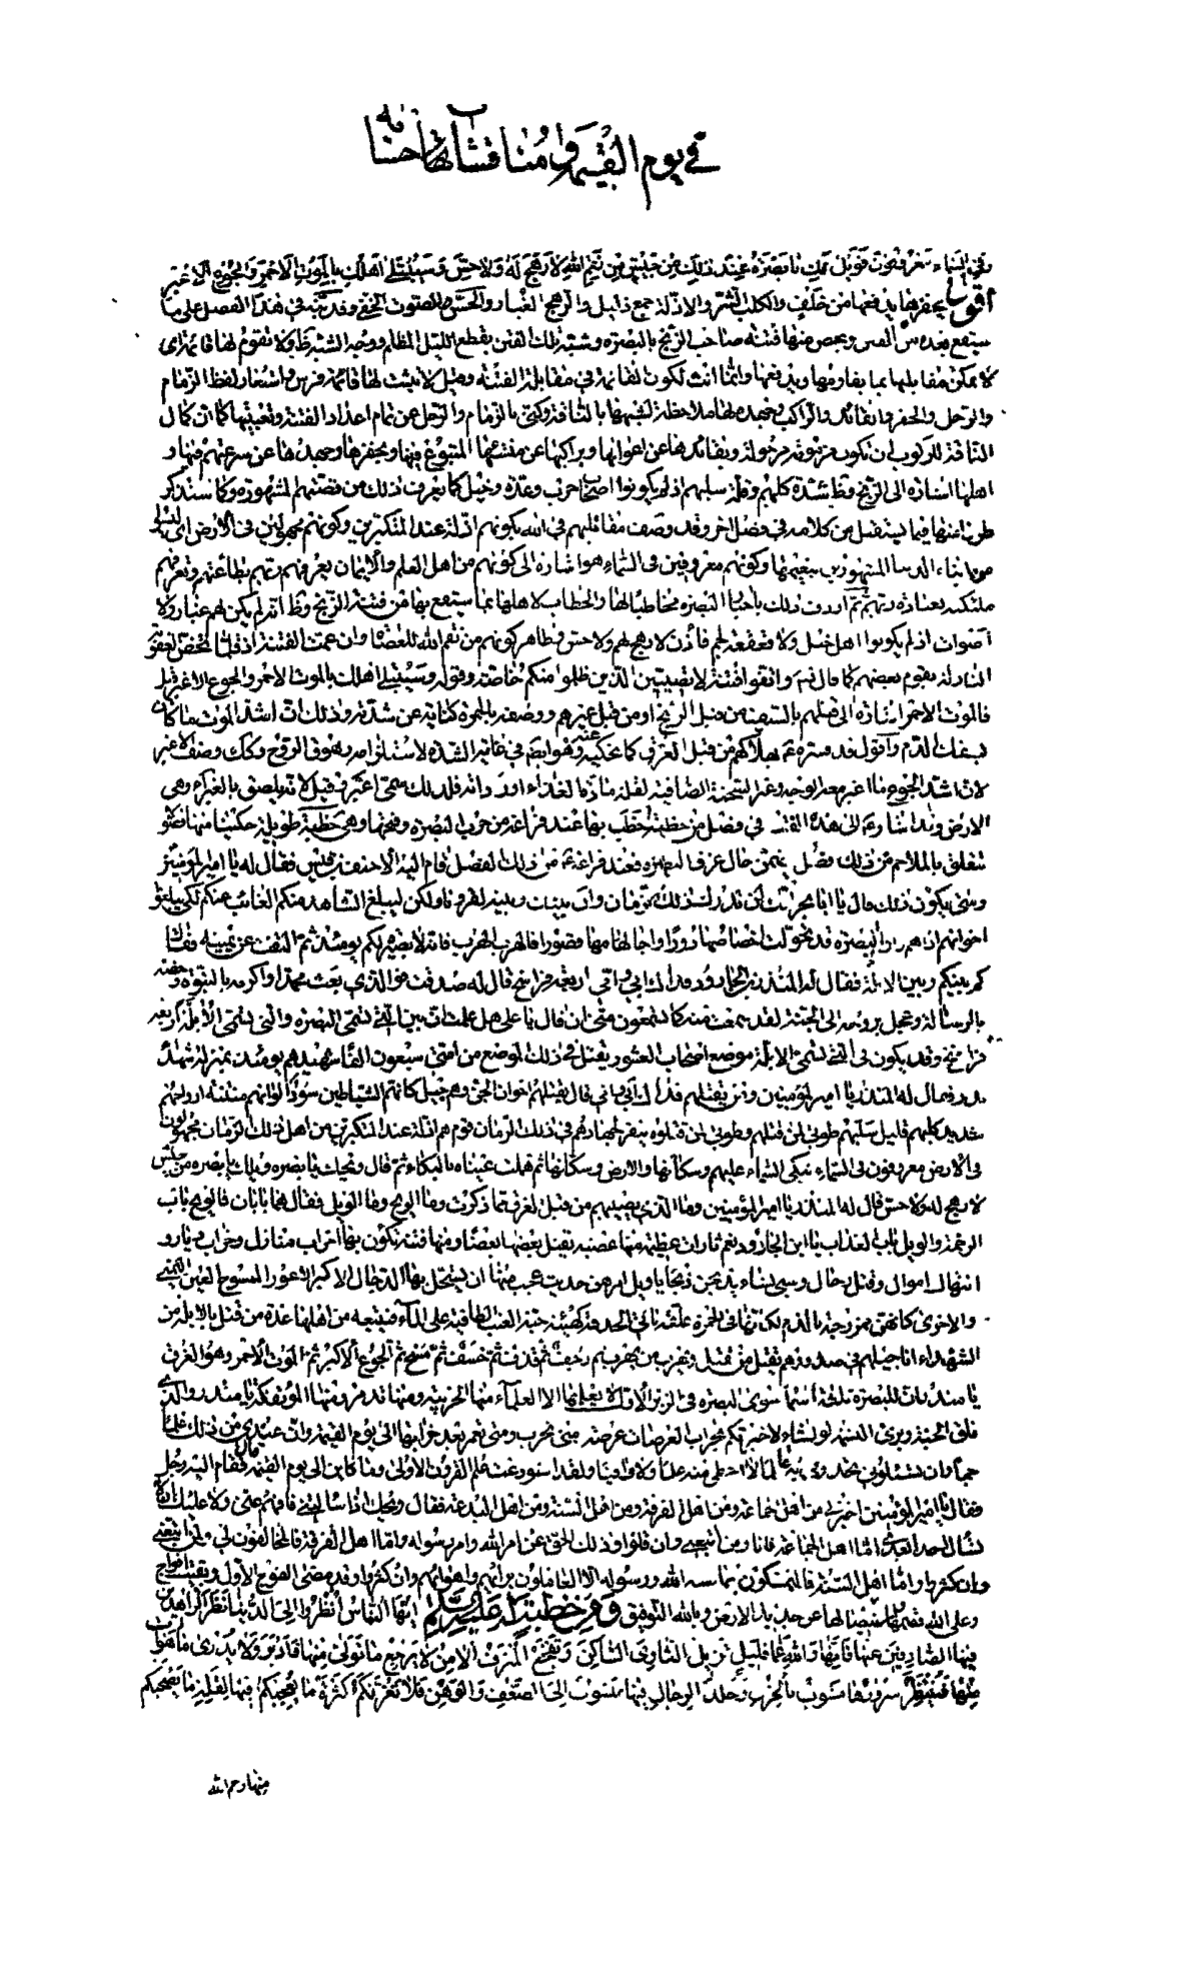 في يوم القيمة و مناقشات حسابه
وفي السماء معروفون فويل لك يا بصرة عند ذلك من جيش من نقم الله لا رهج له ولا حس وسيبتلى اهلك بالموت الاحمر والجوع الاغبر
اقول يحفزها يدفعها من خلف والكلب الشر والاذلة جمع ذليل والرهج الغبار والحس الصوت الخفي وقد نبه في هذا الفصل على ما
سيقع بعده من الفتن ويخص منها فتنة صاحب الزنج بالبصرة وشبه تلك الفتن بقطع الليل المظلم ووجه الشبه ظ ولا تقوم لها قائمة اى
لا يمكن مقابلتها بما يقاومها ويدفعها وانما انث لكون القائمة في مقابلة الفتنة وقيل لا يثبت لها قائمة فرس واستعار لفظ الزمام
والرحل والحفز والقائد والراكب وجهده لها ملاحظة لشبهها بالناقة وكنى بالزمام والرحل عن تمام اعداد الفتنة وتعبيتها كما ان كمال
الناقة للركوب ان تكون مزمومة مرحولة وبقائدها عن اعوانها وبراكبها عن منشئها المتبوع فيها وبحفزها وجهده لها عن سرعتهم فيها و
اهلها اشارة الى الزنج وظ شدة كلبهم وقلة سلبهم اذ لم يكونوا اصحاب حرب وعدة وخيل كما يعرف ذلك من قصتهم المشهورة وكما سنذكر
طرفا منها فيما يستقبل من كلامه في فصل اخر وقد وصف مقاتليهم في الله بكونهم اذلة عند المتكبرين وكونهم مجهولين في الارض اى ليسوا
من ابناء الدنيا المشهورين بنعيمها وكونهم معروفين في السماء هو اشارة الى كونهم من اهل العلم والايمان يعرفهم ربهم بطاعتهم وتعرفهم
ملائكته بعبادة ربهم ثم اردف ذلك باخبار البصرة مخاطبا لها والخطاب لاهلها بما سيقع بها من فتنة الزنج وظ انه لم يكن لهم غبار ولا
اصوات اذ لم يكونوا اهل خيل ولا قعقعة لجم فاذن لا رهج لهم ولا حس وظاهر كونهم من نقم الله للعصاة وان عمت الفتنة اذ قلما تخص العقوبة
النازلة بقوم بعضهم كما قال تعم واتقوا فتنة لا تصيبن الذين ظلموا منكم خاصة وقوله وسيبتلى اهلك بالموت الاحمر والجوع الاغبر قيل
فالموت الاحمر اشارة الى قتلهم بالسيف من قبل الزنج او من قبل غيرهم ووصفه بالحمرة كناية عن شدته وذلك ان اشد الموت ما كان
بسفك الدم واقول قد فسره ع بهلاكهم من قبل الغرق كما نحكيه عنه وهو ايضا في غاية الشدة لاستلزامه زهوق الروح وكذلك وصف الاغبر
لان اشد الجوع ما اغبر معه الوجه وغبر السحنة الصافية لقلة مادة الغذاء او ردائته فلذلك سمى اغبر وقيل لانه يلصق بالغبراء وهى
الارض وقد اشار ع الى هذه الفتنة في فصل من خطبة خطب بها عند فراغه من حرب البصرة وفتحها وهى خطبة طويلة حكينا منها فصولا
تتعلق بالملاحم من ذلك فصل يتضمن حال غرق البصرة فعند فراغه ع من ذلك الفصل قام اليه الاحنف بن قيس فقال له يا امير المؤمنين
ومتى يكون ذلك قال يا ابا بحر انك لن تدرك ذلك الزمان وان بينك وبينه لقرونا ولكن ليبلغ الشاهد منكم الغائب عنكم لكى يبلغوا
اخوانهم اذا هم راوا البصرة قد تحولت اخصاصها دورا واجامها قصورا فالهرب الهرب فانه لا بصيرة لكم يومئذ ثم التفت عن يمينه فقال
كم بينكم وبين الابلة فقال له المنذر بن الجارود فداك ابى وامى اربعة فراسخ قال له صدقت فوالذى بعث محمدا واكرمه بالنبوة وخصه
بالرسالة وعجل بروحه الى الجنة لقد سمعت منه كما تسمعون منى ان قال يا على هل علمت ان بين التى تسمى البصرة والتى تسمى الابلة اربعة
فراسخ وقد يكون فى التى تسمى الابلة موضع اصحاب العشور يقتل في ذلك الموضع من امتى سبعون الفا شهيدهم يومئذ بمنزلة شهداء
بدر فقال له المنذر يا امير المؤمنين ومن يقتلهم فداك ابى وامى قال يقتلهم اخوان الجن وهم جيل كانهم الشياطين سود الوانهم منتنة ارواحهم
شديد كلبهم قليل سلبهم طوبى لمن قتلهم وطوبى لمن قتلوه ينفر لجهادهم في ذلك الزمان قوم هم اذلة عند المتكبرين من اهل ذلك الزمان مجهولون
فى الارض معروفون فى السماء تبكى السماء عليهم وسكانها والارض وسكانها ثم هملت عيناه بالبكاء ثم قال ويحك يا بصرة ويلك يا بصرة من جيش
لا رهج له ولا حس قال له المنذر يا امير المؤمنين وما الذى يصيبهم من قبل الغرق مما ذكرت وما الويح وما الويل فقال هما بابان فالويح باب
الرحمة والويل باب العذاب يا ابن الجارود نعم ثارات عظيمة منها عصبة يقتل بعضها بعضا ومنها فتنة تكون بها اخراب منازل وخراب ديار و
انتهاك اموال وقتل رجال وسبى نساء يذبحن ذبحا يا ويل امرهن حديث عجب منها ان يستحل بها الدجال الاكبر الاعور الممسوح العين اليمنى
والاخرى كانها ممزوجة بالدم لكانها في الحمرة علقة ناتى الحدقة كهيئة حبة العنب الطافية على الماء فيتبعه من اهلها عدة من قتل بالابلة من
الشهداء اناجيلهم في صدورهم يقتل من يقتل ويهرب من يهرب ثم رجف ثم قذف ثم خسف ثم مسخ ثم الجوع الاكبر ثم الموت الاحمر وهو الغرق
يا منذر ان للبصرة ثلثة اسماء سوى البصرة في الزبر الاول لا يعلمها الا العلماء منها الخريبة ومنها تدمر ومنها المؤتفكة يا منذر والذى
فلق الحبة وبرى النسمة لو اشاء لاخبرتكم بخراب العرصات عرصة عرصة متى تخرب ومتى تعمر بعد خرابها الى يوم القيمة وان عندى من ذلك علما
جما وان تسئلونى تجدونى به عالما لا اخطى منه علما ولا وافيا ولقد استودعت علم القرون الاولى وما كائن الى يوم القيمة قال فقام اليه رجل
فقال يا امير المؤمنين اخبرنى من اهل الجماعة ومن اهل الفرقة ومن اهل السنة ومن اهل البدعة فقال ويحك اذا سالتنى فافهم عنى ولا عليك ان لا
تسأل احدا بعدى اما اهل الجماعة فانا ومن اتبعنى وان قلوا وذلك الحق عن امر الله وامر رسوله واما اهل الفرقة فالمخالفون لى ولمن اتبعنى
وان كثروا واما اهل السنة فالمتمسكون بما سنه الله ورسوله لا العاملون برايهم واهوائهم وان كثروا وقد مضى الفوج الاول وبقيت افواج
وعلى الله قصمها واستيصالها عن جدد الارض وبالله التوفيق ومن خطبة له عليه السلم ايها الناس انظروا الى الدنيا نظر الزاهدين
فيها الصادفين عنها فانها والله عما قليل تزيل الثاوى الساكن وتفجع المترف الامن لا يرجع ما تولى منها فادبر ولا يدرى ما هو ات
منها فينتظر سرورها مشوب بالحزن وجلد الرجال فيها منسوب الى الضعف والوهن فلا تغرنكم كثرة ما يعجبكم فيها لقلة ما يصحبكم
منها رحم الله